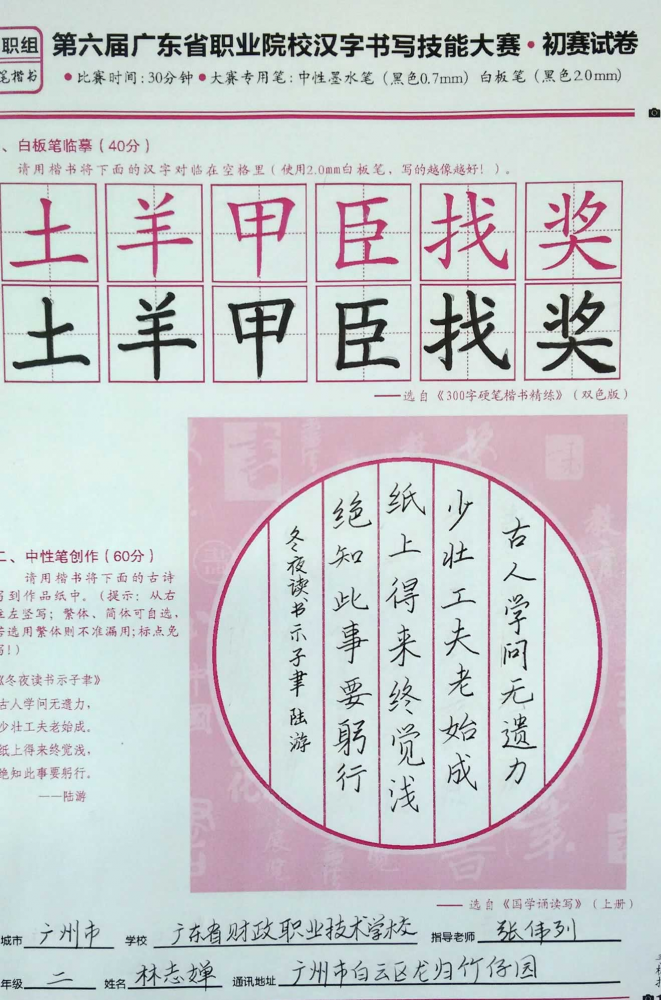 职组
笔楷书
第六届广东省职业院校汉字书写技能大赛·初赛试卷
●比赛时间:30分钟●大赛专用笔:中性墨水笔（黑色0.7mm）白板笔（黑色2.0mm）
、白板笔临摹（40分）
请用楷书将下面的汉字对临在空格里（使用2.0mm白板笔，写的越像越好！）。
土羊甲臣找奖
土羊甲臣找奖
——选自《300字硬笔楷书精练》（双色版）
二、中性笔创作（60分）
请用楷书将下面的古诗
写到作品纸中。（提示：从右
往左竖写；繁体、简体可自选，
若选用繁体则不准漏用;标点免
写!）
《冬夜读书示子聿》
古人学问无遗力，
少壮工夫老始成。
纸上得来终觉浅，
绝知此事要躬行。
——陆游
古人学问无遗力
少壮工夫老始成
纸上得来终觉浅
绝知此事要躬行
冬夜读书示子聿 陆游
——选自《国学诵读写》（上册）
城市 广州市 学校 广东省财政职业技术学校 指导老师 张伟列
年级 二 姓名 林志婵 通讯地址 广州市白云区龙归竹仔园